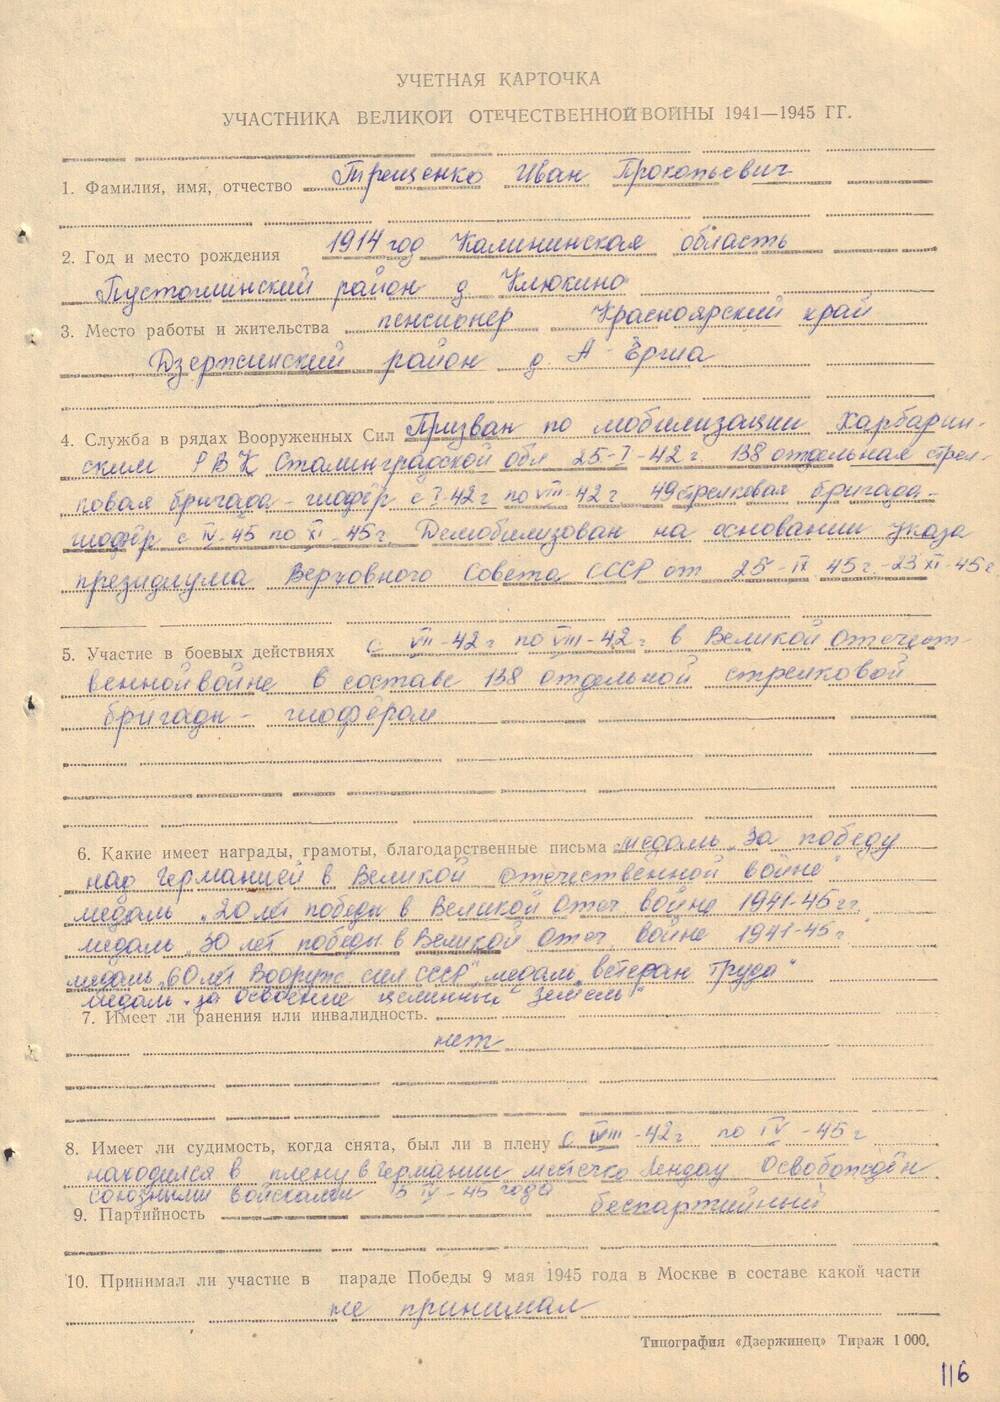 УЧЕТНАЯ КАРТОЧКА
УЧАСТНИКА ВЕЛИКОЙ ОТЕЧЕСТВЕННОЙ ВОЙНЫ 1941—1945 ГГ.
1. Фамилия, имя, отчество Трещенко Иван Прокопьевич
2. Год и место рождения 1914 год Калининская область
Пустошинский район д Клюкино
3. Место работы и жительства пенсионер Красноярский край
Дзержинский район д. А-Ёрша
4. Служба в рядах Вооруженных Сил Призван по мобилизации Харбарин-
ским РВК Сталинградской обл 25-I-42 г. 138 отдельная стрел-
ковая бригада - шофёр с I-42 г по VIII-42 г 49 стрелковая бригада -
шофёр с IV-45 по XI-45 г. Демобилизован на основании указа
президиума Верховного Совета СССР от 25-IX 45 г. -23 XI-45 г
5. Участие в боевых действиях с VII-42 г по VIII-42 г в Великой отечест-
венной войне в составе 138 отдельной стрелковой
бригады - шофёром
6. Какие имеет награды, грамоты, благодарственные письма медаль „За победу
над Германией в Великой отечественной войне"
медаль „20 лет победы в Великой Отеч. войне 1941-45 гг.
медаль „30 лет победы в Великой Отеч. войне 1941-45 г"
медаль „60 лет Вооруж сил СССР", медаль „ветеран труда"
медаль „за освоение целинных земель"
7. Имеет ли ранения или инвалидность.
нет
8. Имеет ли судимость, когда снята, был ли в плену с VIII-42 г по IV-45 г
находился в плену в Германии местечко Лендау Освобождён
союзными войсками 15 IV-45 года
9. Партийность беспартийный
10. Принимал ли участие в параде Победы 9 мая 1945 года в Москве в составе какой части
не принимал
Типография «Дзержинец» Тираж 1 000.
116